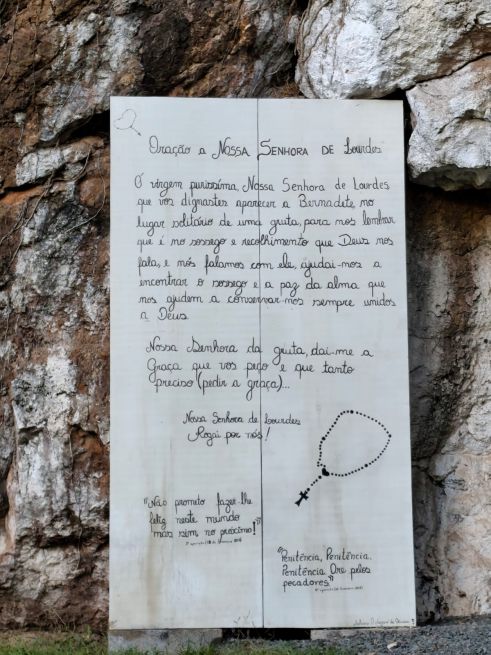 Oração a Nossa Senhora de Lourdes
Ó virgem puríssima, Nossa Senhora de Lourdes
que vos dignastes aparecer a Bernadete, no
lugar solitário de uma gruta, para nos lembrar
que é no sossego e recolhimento que Deus nos
fala, e nós falamos com ele, ajudai-nos a
encontrar o sossego e a paz da alma que
nos ajudem a conservar-nos sempre unidos
a Deus.
Nossa Senhora da gruta, dai-me a
Graça que vos peço e que tanto
preciso (pedir a graça)...
Nossa Senhora de Lourdes
Rogai por nós!
"Não prometo fazer-lhe
feliz neste mundo
mas sim no próximo!"
"Penitência, Penitência,
Penitência Ore pelos
pecadores"